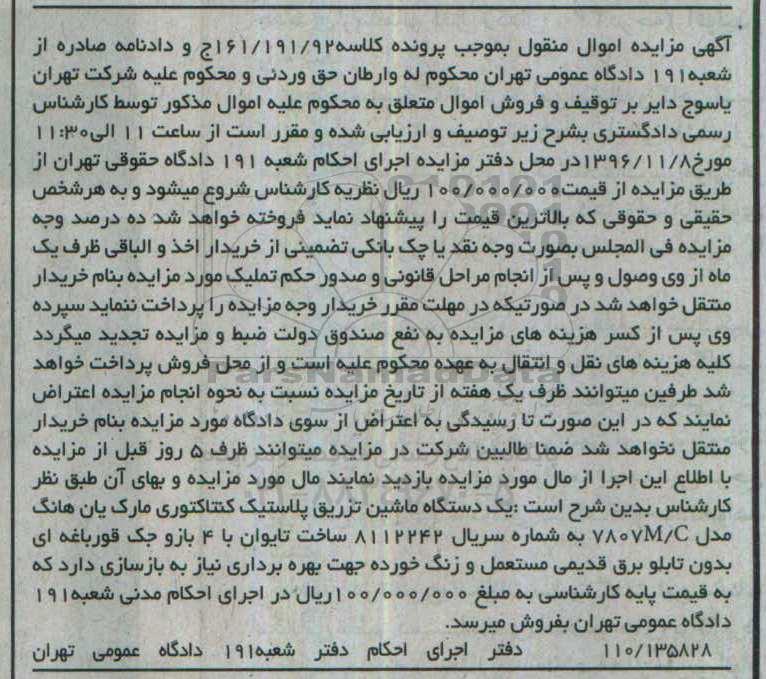 آگهی مزایده اموال منقول بموجب پرونده کلاسه۱۶۱/۱۹۱/۹۲ج و دادنامه صادره از
شعبه۱۹۱ دادگاه عمومی تهران محکوم له وارطان حق وردئی و محکوم علیه شرکت تهران
یاسوج دایر بر توقیف و فروش اموال متعلق به محکوم علیه اموال مذکور توسط کارشناس
رسمی دادگستری بشرح زیر توصیف و ارزیابی شده و مقرر است از ساعت ۱۱ الی۱۱:۳۰
مورخ۱۳۹۶/۱۱/۸در محل دفتر مزایده اجرای احکام شعبه ۱۹۱ دادگاه حقوقی تهران از
طریق مزایده از قیمت۱۰۰/۰۰۰/۰۰۰ ریال نظریه کارشناس شروع میشود و به هرشخص
حقیقی و حقوقی که بالاترین قیمت را پیشنهاد نماید فروخته خواهد شد ده درصد وجه
مزایده فی المجلس بصورت وجه نقد یا چک بانکی تضمینی از خریدار اخذ و الباقی ظرف یک
ماه از وی وصول و پس از انجام مراحل قانونی و صدور حکم تملیک مورد مزایده بنام خریدار
منتقل خواهد شد در صورتیکه در مهلت مقرر خریدار وجه مزایده را پرداخت ننماید سپرده
وی پس از کسر هزینه های مزایده به نفع صندوق دولت ضبط و مزایده تجدید میگردد
کلیه هزینه های نقل و انتقال به عهده محکوم علیه است و از محل فروش پرداخت خواهد
شد طرفین میتوانند ظرف یک هفته از تاریخ مزایده نسبت به نحوه انجام مزایده اعتراض
نمایند که در این صورت تا رسیدگی به اعتراض از سوی دادگاه مورد مزایده بنام خریدار
منتقل نخواهد شد ضمنا طالبین شرکت در مزایده میتوانند ظرف ۵ روز قبل از مزایده
با اطلاع این اجرا از مال مورد مزایده بازدید نمایند مال مورد مزایده و بهای آن طبق نظر
کارشناس بدین شرح است :یک دستگاه ماشین تزریق پلاستیک کنتاکتوری مارک یان هانگ
مدل ۷۸۰۷M/C به شماره سریال ۸۱۱۲۲۴۲ ساخت تایوان با ۴ بازو جک قورباغه ای
بدون تابلو برق قدیمی مستعمل و زنگ خورده جهت بهره برداری نیاز به بازسازی دارد که
به قیمت پایه کارشناسی به مبلغ ۱۰۰/۰۰۰/۰۰۰ریال در اجرای احکام مدنی شعبه۱۹۱
دادگاه عمومی تهران بفروش میرسد.
۱۱۰/۱۳۵۸۲۸ دفتر اجرای احکام دفتر شعبه۱۹۱ دادگاه عمومی تهران
ParsNamadData